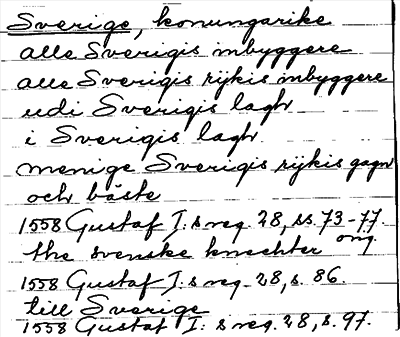 Sverige, konungarike
alle Sverigis inbyggere
alle Sverigis rijkis inbyggere
udi Sverigis lagh
i Sverigis lagh.
menige Sverigis rijkis gagn
och bäste
1558 Gustaf I:s reg. 28, ss. 73-77.
the svenske knechter orig.
1558 Gustaf I:s reg. 28, s. 86.
till Sverige
1558 Gustaf I:s reg. 28, s. 97.